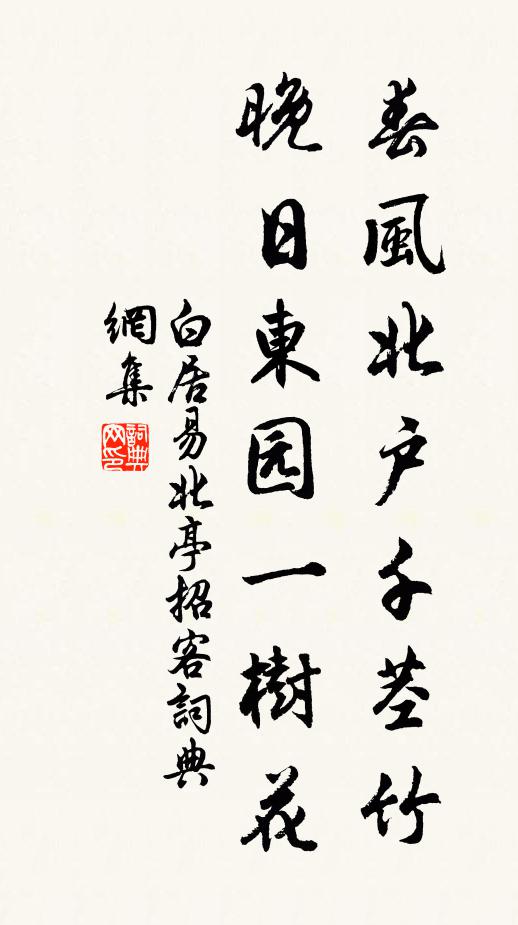 春風北户千茎竹
晚日東园一樹花
白居易北亭招客詞典
網集
詞典
网印